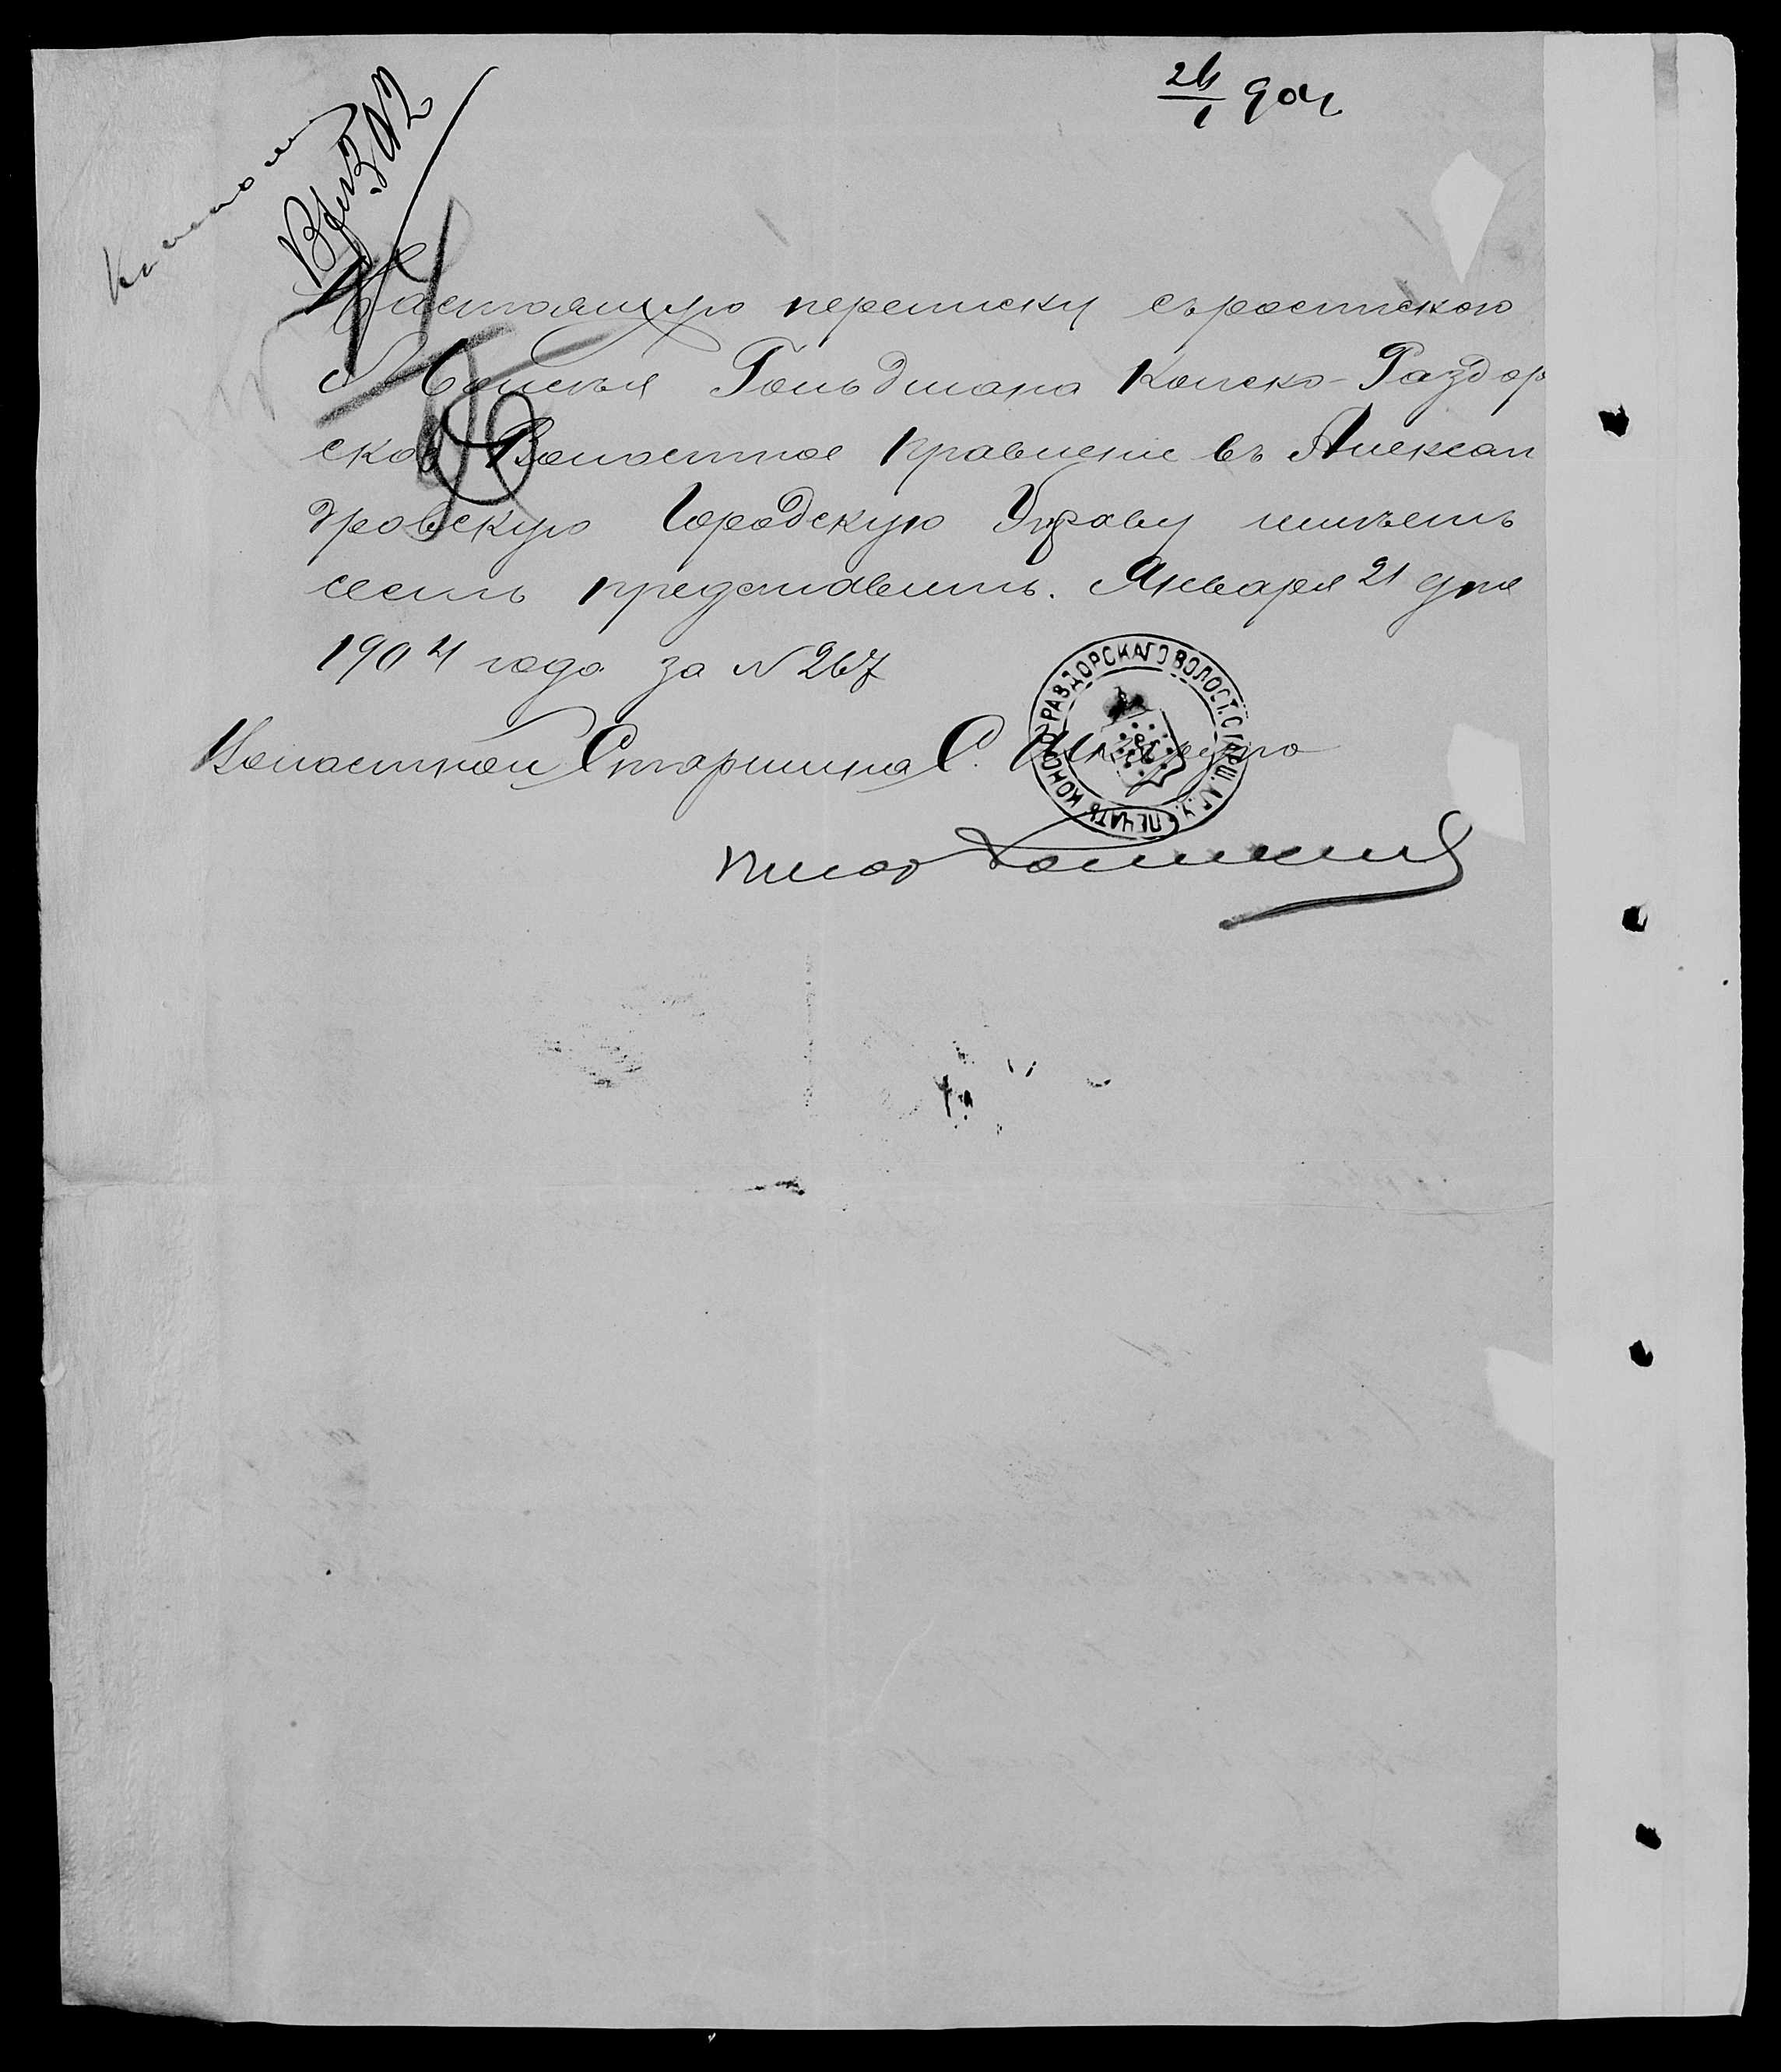 26/1 904
Вх. 302
Настоящую переписку съ роспискою
Мойсея Гольдмана Конско-Раздор
ское Волостное Правленіе въ Алексан
дровскую Городскую Управу имѣетъ
честь представить. Января 21 дня
1904 года за № 267
Волостной Старшина С.
ПЕЧАТЬ КОНСКО-РАЗДОРСКАГО ВОЛОСТ. СТАРШ. АЛ. У.
Писарь